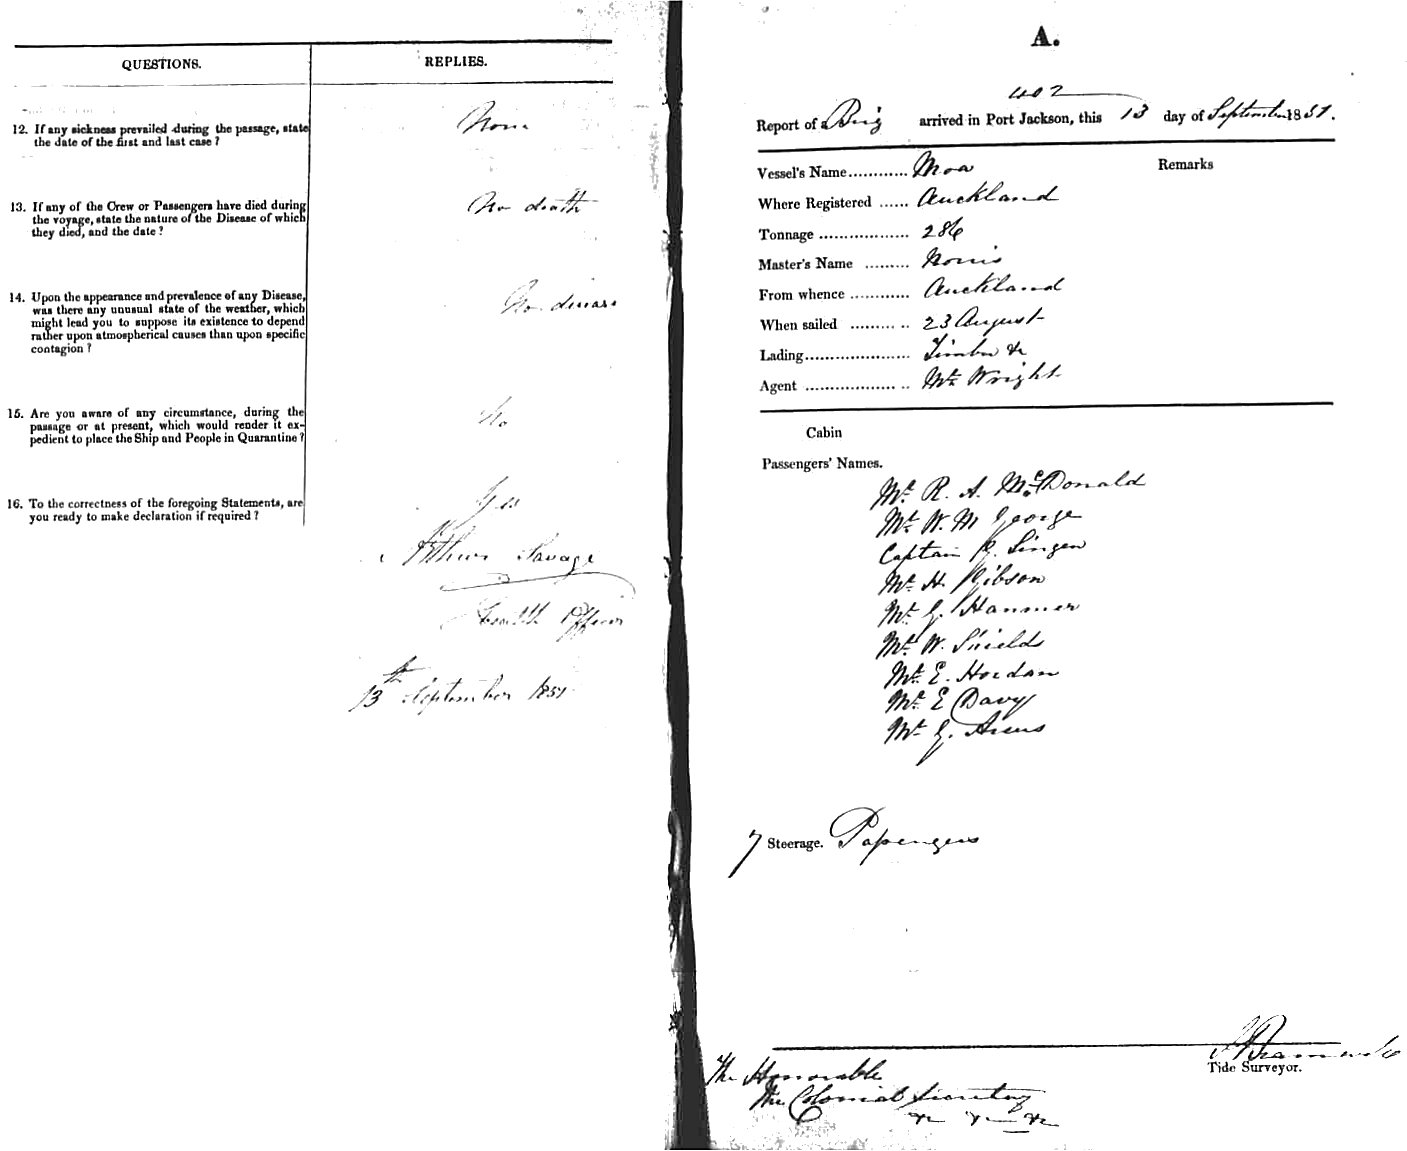 QUESTIONS. REPLIES.
12. If any sickness prevailed during the passage, state
the date of the first and last case ?
None
13. If any of the Crew or Passengers have died during
the voyage, state the nature of the Disease of which
they died, and the date ?
No death
14. Upon the appearance and prevalence of any Disease,
was there any unusual state of the weather, which
might lead you to suppose its existence to depend
rather upon atmospherical causes than upon specific
contagion ?
No disease
15. Are you aware of any circumstance, during the
passage or at present, which would render it ex-
pedient to place the Ship and People in Quarantine ?
No
16. To the correctness of the foregoing Statements, are
you ready to make declaration if required ?
Yes
Arthur Savage
Health Officer
13th September 1851
A.
402
Report of a Brig arrived in Port Jackson, this 13 day of September 1851.
Vessel's Name ............ Moa Remarks
Where Registered ...... Auckland
Tonnage .................. 286
Master's Name ......... Norris
From whence ............ Auckland
When sailed ............ 23 August
Lading..................... Timber &c
Agent ...................... Mr. Wright
Cabin
Passengers' Names.
Mr. R. A. McDonald
Mr. W. M George
Captain G. Singen
Mr. H. Gibson
Mr. G. Hanmer
Mr. W. Shields
Mr. E. Hordan
Mr. E Davy
Mr. G.
7 Steerage. Passengers
Tide Surveyor.
The Honorable
The Colonial Secretary
&c &c &c